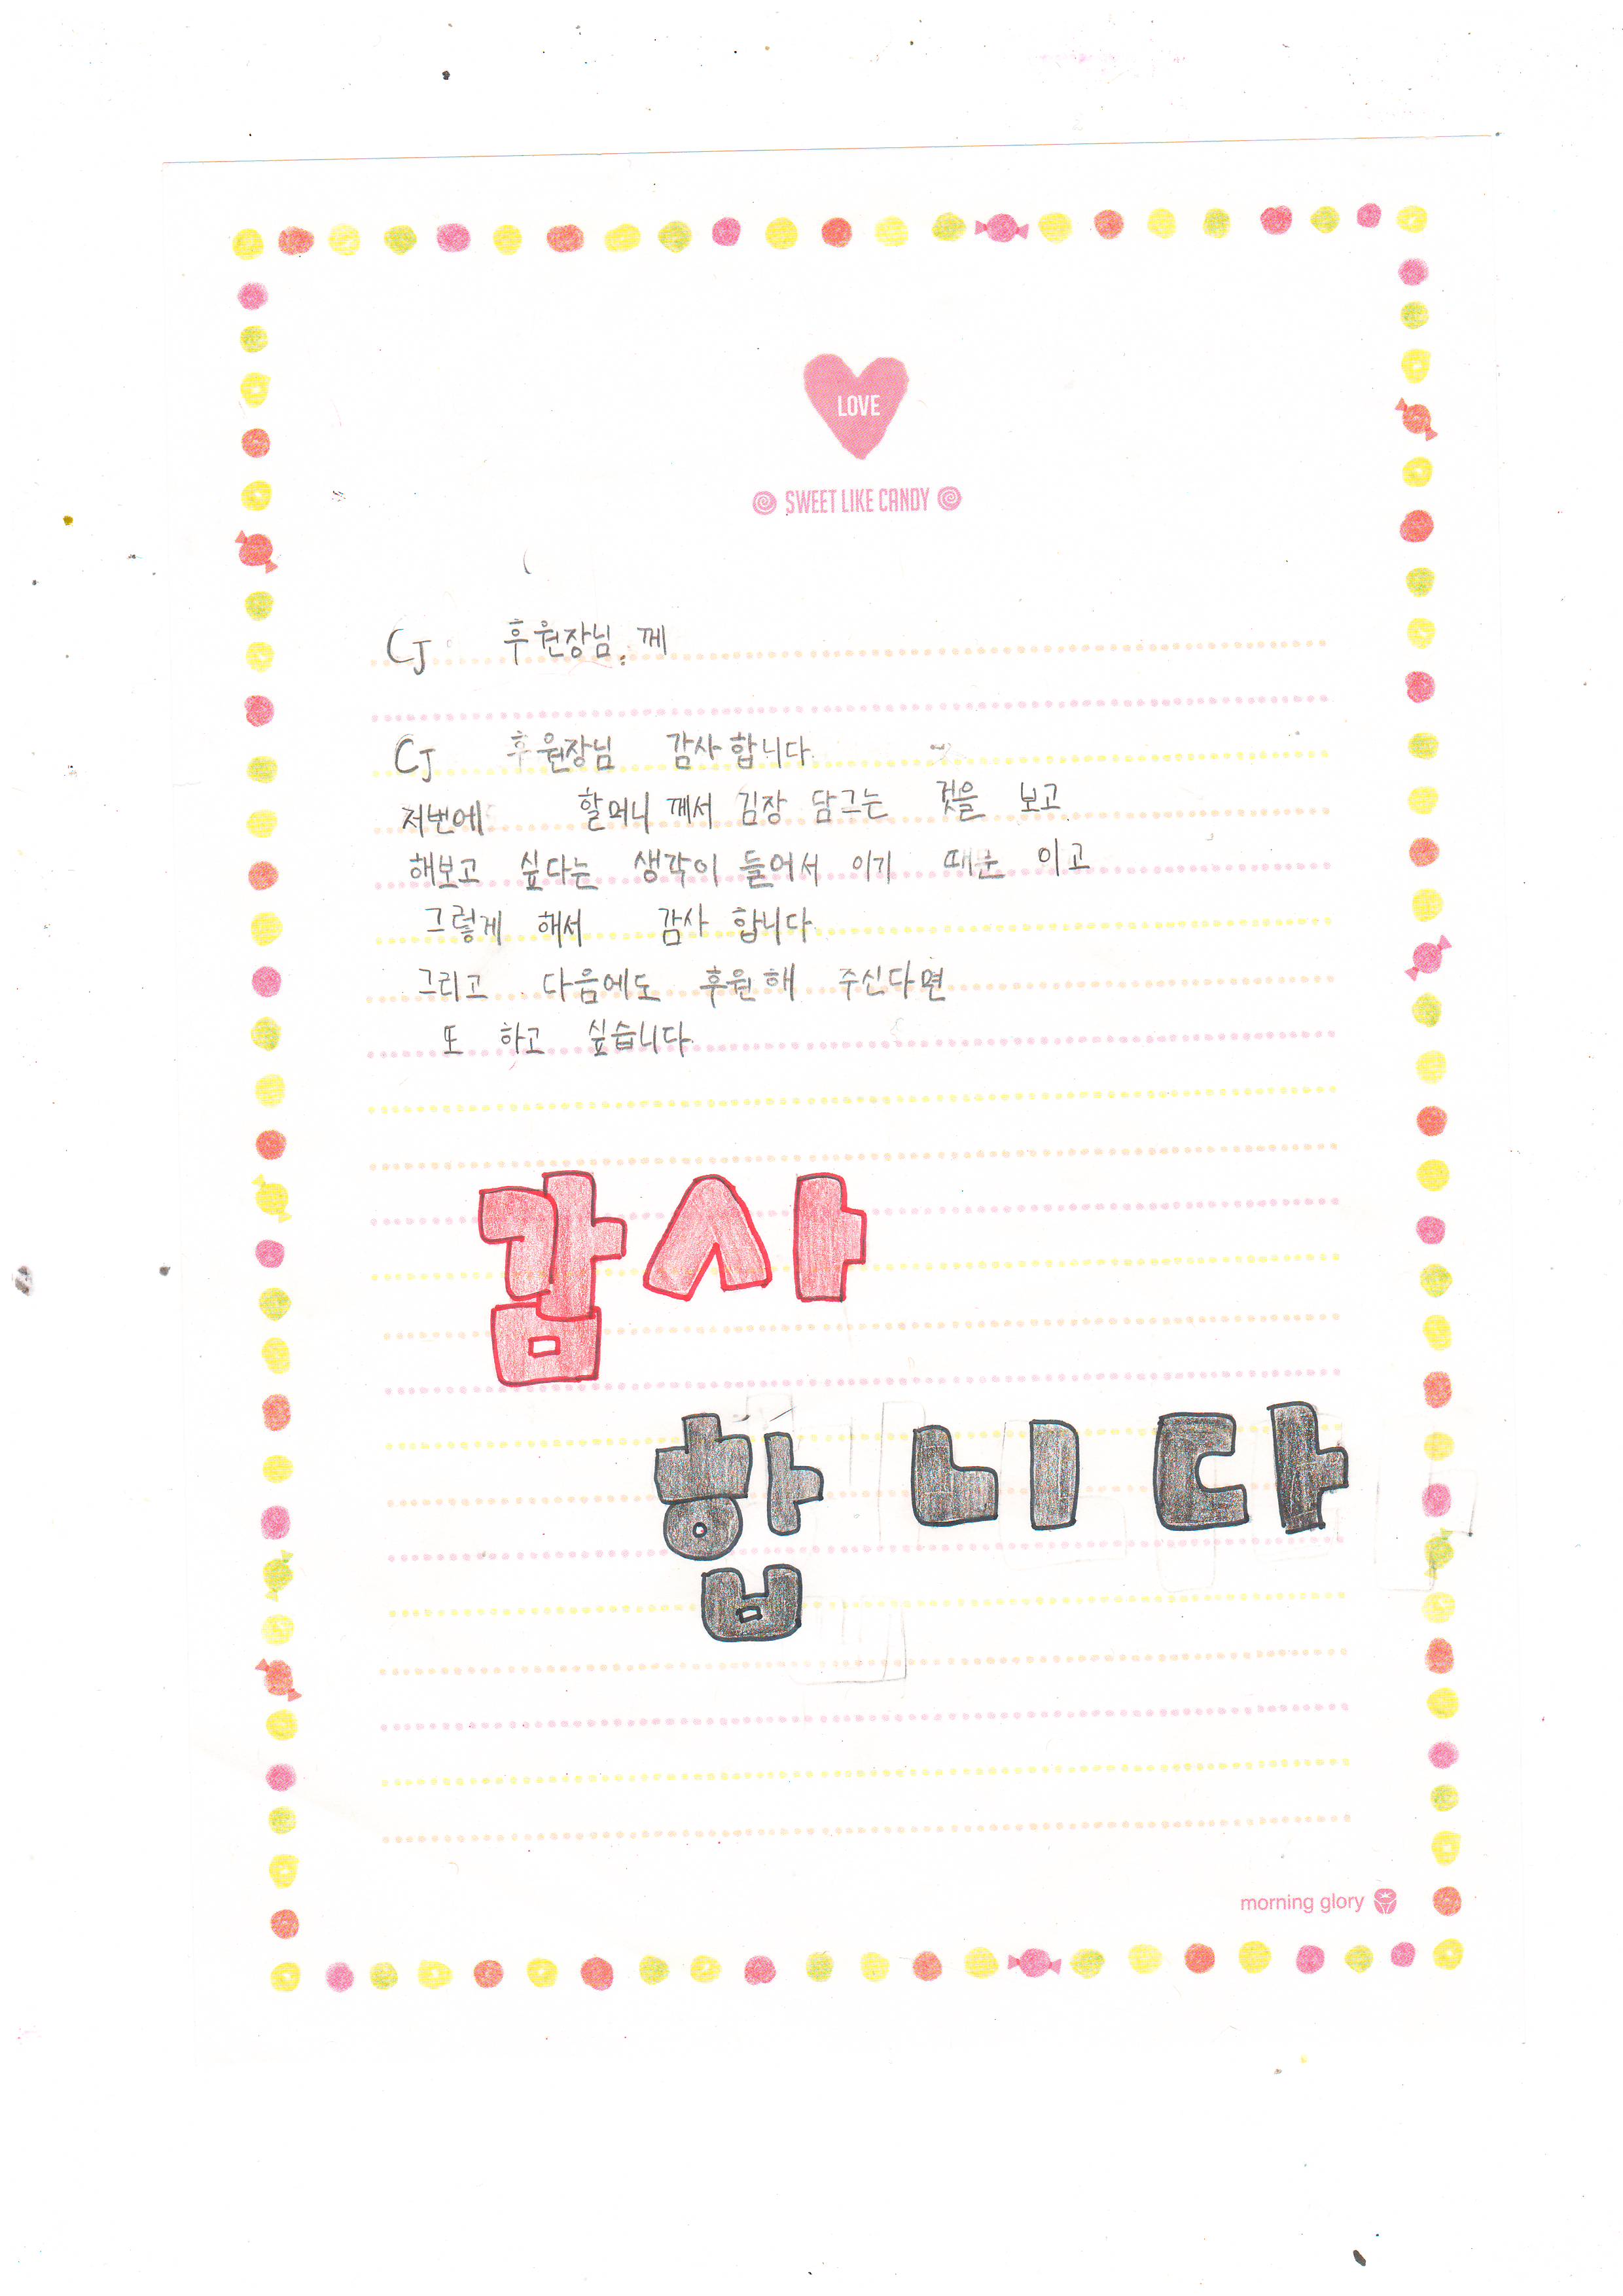 LOVE
SWEET LIKE CANDY
CJ 후원장님께
CJ 후원장님 감사합니다.
저번에 할머니께서 김장 담그는 것을 보고
해보고 싶다는 생각이 들어서 이기 때문 이고
그렇게 해서 감사 합니다.
그리고 다음에도 후원해 주신다면
또 하고 싶습니다.
감사
합니다
morning glory